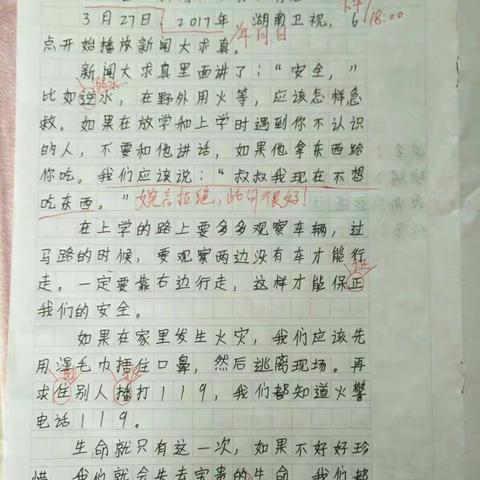 3月27日2017年,湖南卫视,6
下午18:00
点开始播放新闻大求真。
年月日
新闻大求真里面讲了:“安全,”
溺水
比如逆水,在野外用火等,应该怎样急
救。如果在放学和上学时遇到你不认识
的人,不要和他讲话,如果他拿东西给
你吃。我们应该说:“叔叔我现在不想
吃东西。”婉言拒绝,此句很好!
在上学的路上要多多观察车辆,过
马路的时候,要观察两边没有车才能行
走。一定要靠右边行走,这样才能保正
证
我们的安全。
如果在家里发生火灾,我们应该先
用湿毛巾捂住口鼻,然后逃离现场。再
求住别人播打119,我们都知道火警
电话119。
生命就只有这一次,如果不好好珍
惜,我们就会失去宝贵的生命,我们都